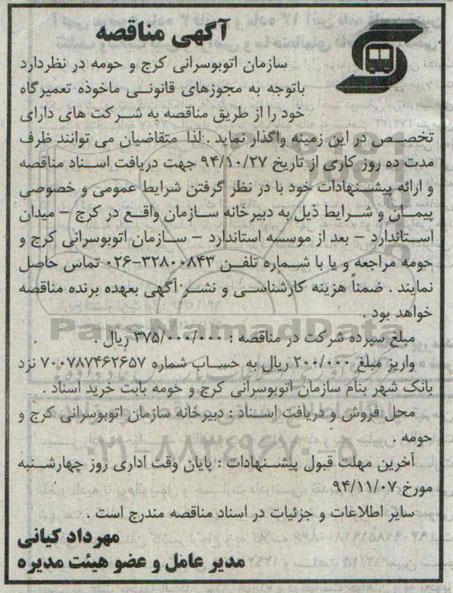 آگهی مناقصه
سازمان اتوبوسرانی کرج و حومه در نظردارد
باتوجه به مجوزهای قانونی ماخوذه تعمیرگاه
خود را از طریق مناقصه به شرکت های دارای
تخصص در این زمینه واگذار نماید . لذا متقاضیان می توانند ظرف
مدت ده روز کاری از تاریخ ۹۴/۱۰/۲۷ جهت دریافت اسناد مناقصه
و ارائه پیشنهادات خود با در نظر گرفتن شرایط عمومی و خصوصی
پیمان و شرایط ذیل به دبیرخانه سازمان واقع در کرج – میدان
استاندارد – بعد از موسسه استاندارد – سازمان اتوبوسرانی کرج و
حومه مراجعه و یا با شماره تلفن ۳۲۸۰۰۸۴۳-۰۲۶ تماس حاصل
نمایند . ضمناً هزینه کارشناسی و نشر آگهی بعهده برنده مناقصه
خواهد بود .
مبلغ سپرده شرکت در مناقصه : ۳۷۵/۰۰۰/۰۰۰ ریال .
واریز مبلغ ۲۰۰/۰۰۰ ریال به حساب شماره ۷۰۰۷۸۷۴۶۲۶۵۷ نزد
بانک شهر بنام سازمان اتوبوسرانی کرج و حومه بابت خرید اسناد .
محل فروش و دریافت اسناد : دبیرخانه سازمان اتوبوسرانی کرج و
حومه .
آخرین مهلت قبول پیشنهادات : پایان وقت اداری روز چهارشنبه
مورخ ۹۴/۱۱/۰۷
سایر اطلاعات و جزئیات در اسناد مناقصه مندرج است .
مهرداد کیانی
مدیر عامل و عضو هیئت مدیره
ParsNamadData
۰۲۱-۸۸۳۴۹۶۷۰-۵